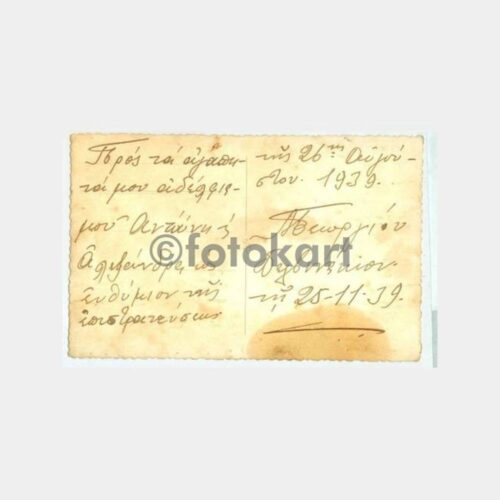 Πρός τά ἀγαπη-
τά μου ἀδέλφια
μου Ἀντώνη &
Ἀλεξάνδρα ὡς
ἐνθύμιον τῆς
ἐπιστρατεύσεως
τῆς 26ης Αὐγού-
στου 1939.
Γεωργίου
τῇ 25-11-39.
©fotokart